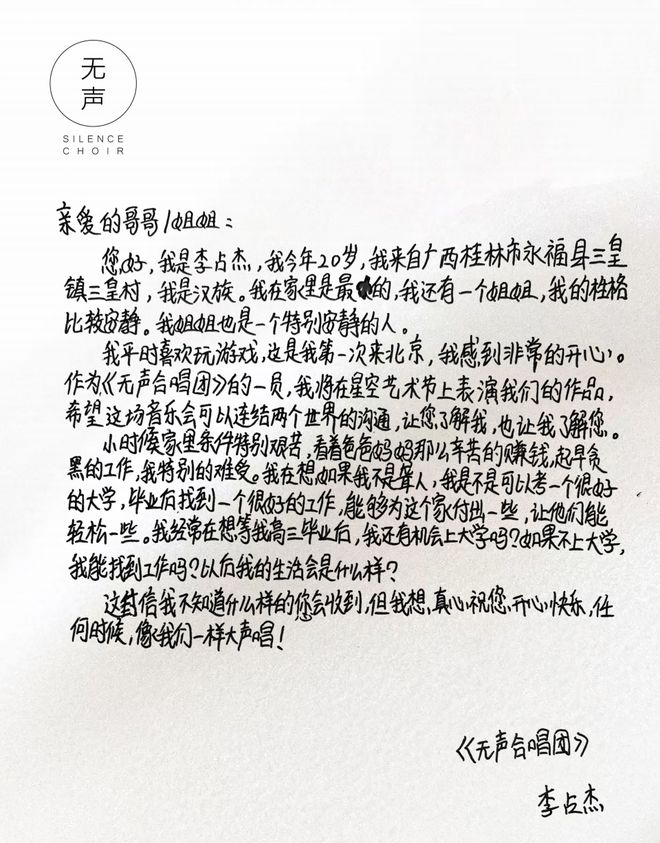 无
声
SILENCE
CHOIR
亲爱的哥哥/姐姐：
您好，我是李占杰，我今年20岁，我来自广西桂林市永福县三皇
镇三皇村，我是汉族。我在家里是最小的，我还有一个姐姐，我的性格
比较安静。我姐姐也是一个特别安静的人。
我平时喜欢玩游戏，这是我第一次来北京，我感到非常的开心。
作为《无声合唱团》的一员，我将在星空艺术节上表演我们的作品，
希望这场音乐会可以连结两个世界的沟通，让您了解我，也让我了解您。
小时候家里条件特别艰苦，看着爸爸妈妈那么辛苦的赚钱，起早贪
黑的工作，我特别的难受。我在想，如果我不是聋人，我是不是可以考一个很好
的大学，毕业后找到一个很好的工作，能够为这个家付出一些，让他们能
轻松一些。我经常在想等我高三毕业后，我还有机会上大学吗？如果不上大学，
我能找到工作吗？以后我的生活会是什么样？
这封信我不知道什么样的您会收到，但我想，真心祝您，开心快乐，任
何时候，像我们一样大声唱！
《无声合唱团》
李占杰